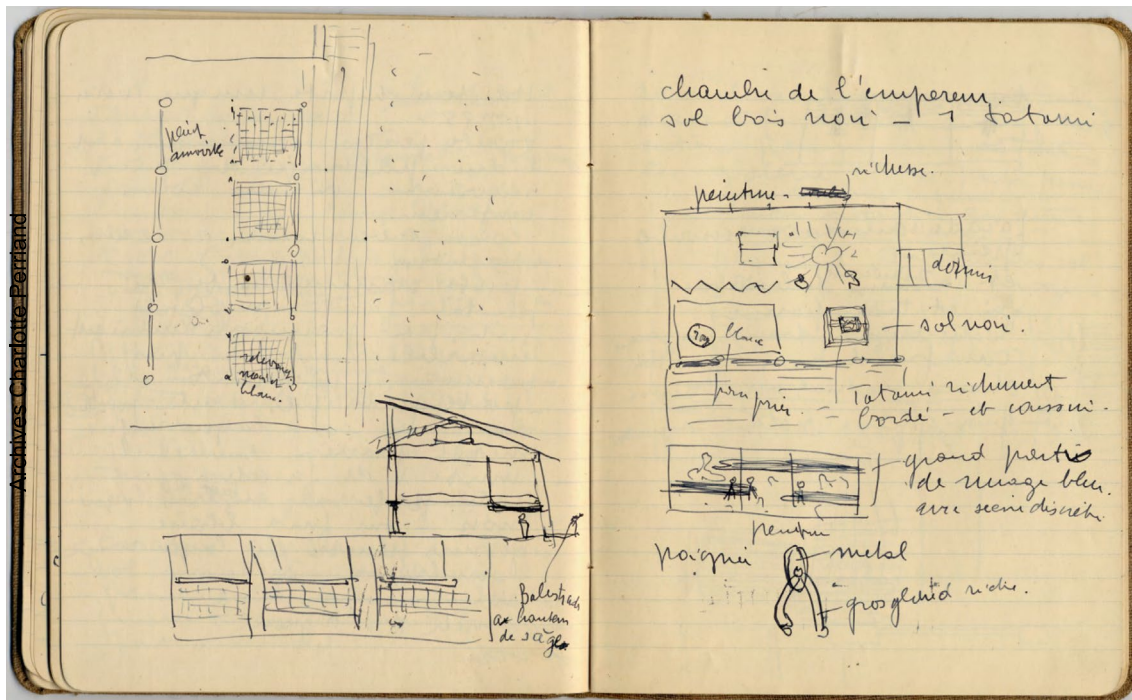 Archives Charlotte Perriand
point
amovible
blanc.
Balustrade
a hauteur
de siège
chambre de l'empereur.
sol bois noir - 1 tatami
richesse.
peinture -
dormir
sol noir.
pour prier.
Tatami richement
bordé - et coussin.
grand partie
de nuage bleu.
avec scène discrète.
peinture
poignée
metal
gros gland riche.